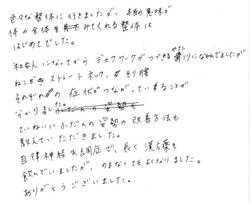 色々な整体に行きましたが、本当の意味で
体の全体をみてくれる整体は
はじめてでした。
社会人になってからデスクワークがつづき肩こりになやんでましたが
ねこぜ ストレートネック、そり腰
それぞれの症状がつながっていることが
分かりました。
ていねいにふだんの姿勢の改善方法も
教えていただきました。
自律神経失調症で、長く漢方薬も
飲んでいましたが、のまなくてもよくなりました。
ありがとうございました。